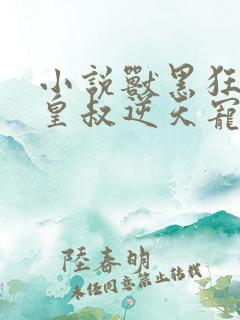 小說獸黑狂
皇叔逆天寵
陸春明
未經同意禁止轉載